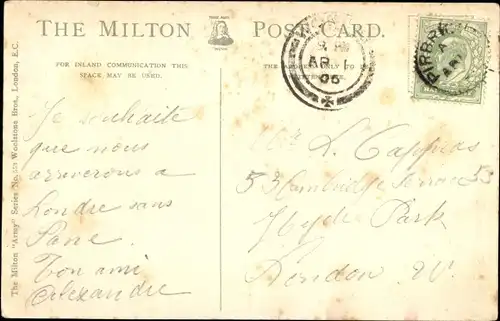 THE MILTON POST CARD.
FOR INLAND COMMUNICATION THIS
SPACE MAY BE USED.
THE ADDRESS ONLY TO BE
AP 1
05
The Milton "Army" Series No. Woolstone Bros., London, E.C.
Je souhaite
que nous
arriverons a
Londre sans
Pane.
Ton ami
Alexandre
L. Cappus
53 Cambridge Terrace 53
Hyde Park
London W.